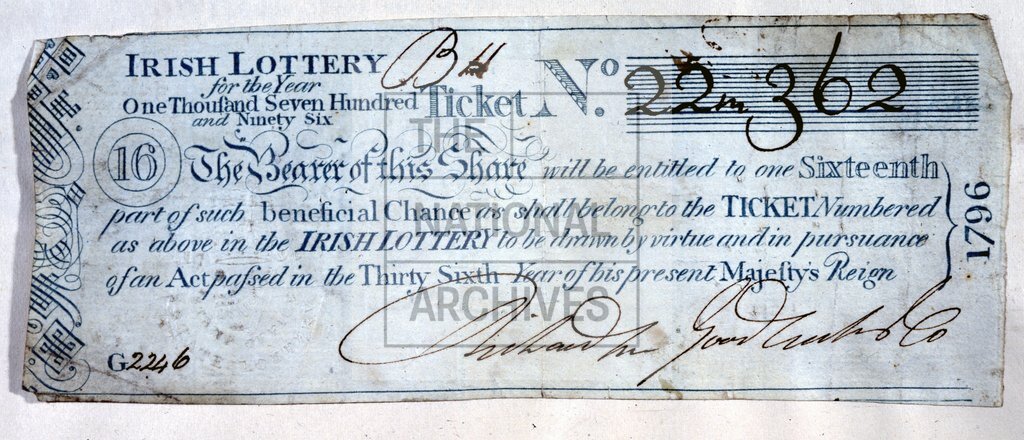 IRISH LOTTERY
for the Year
One Thouſand Seven Hundred
and Ninety Six
Ticket No. 22m362
16
The Bearer of this Share will be entitled to one Sixteenth
part of such beneficial Chance as shall belong to the TICKET Numbered
as above in the IRISH LOTTERY to be drawn by virtue and in pursuance
of an Act paſsed in the Thirty Sixth Year of his present Majeſty's Reign
1796
G2246
Richardson Goodluck & Co
THE
NATIONAL
ARCHIVES